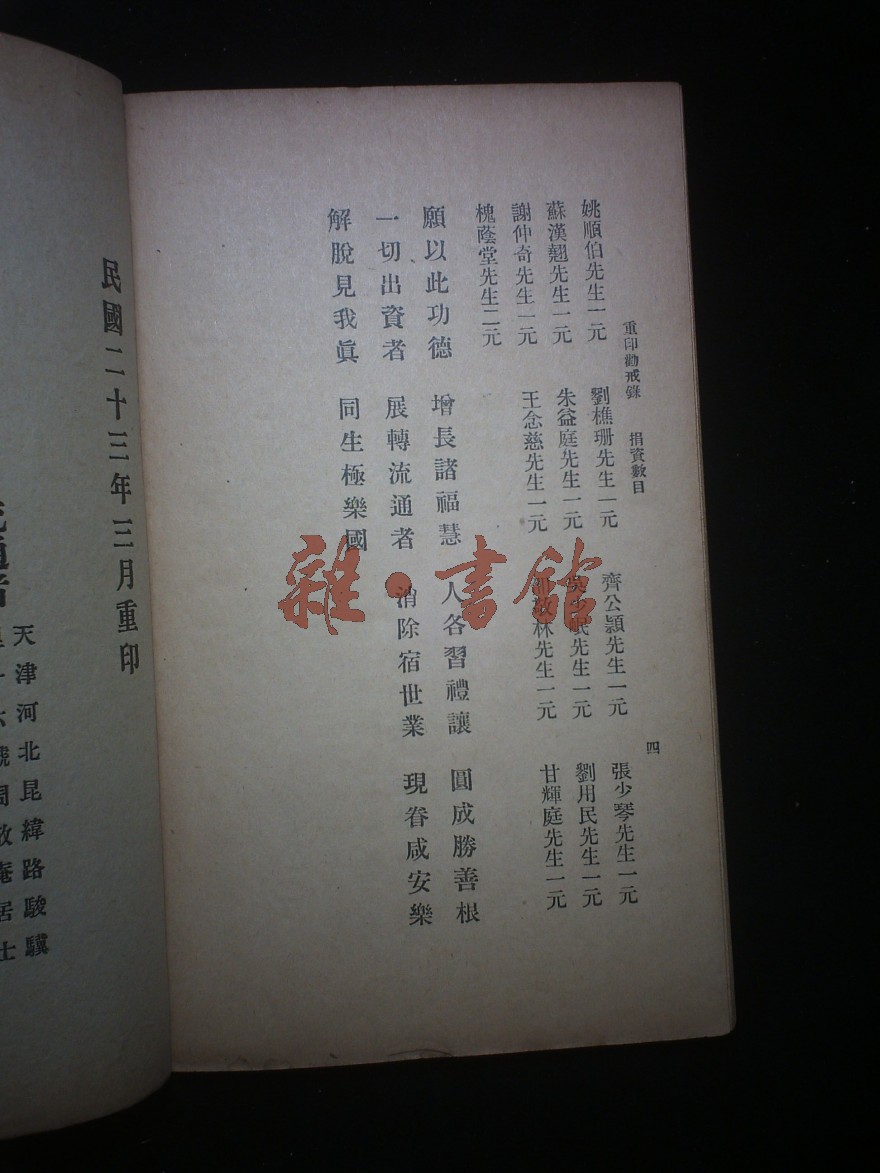 重印勸戒錄 捐資數目 四
姚順伯先生一元 劉樵珊先生一元 齊公穎先生一元 張少琴先生一元
蘇漢翹先生一元 朱益庭先生一元 吳少岷先生一元 劉用民先生一元
謝仲奇先生一元 王念慈先生一元 林先生一元 甘輝庭先生一元
槐蔭堂先生二元
願以此功德 增長諸福慧 人各習禮讓 圓成勝善根
一切出資者 展轉流通者 消除宿世業 現眷咸安樂
解脫見我眞 同生極樂國
民國二十三年三月重印
流通者
天津河北昆緯路駿驥
里十六號周敬庵居士
雜·書館